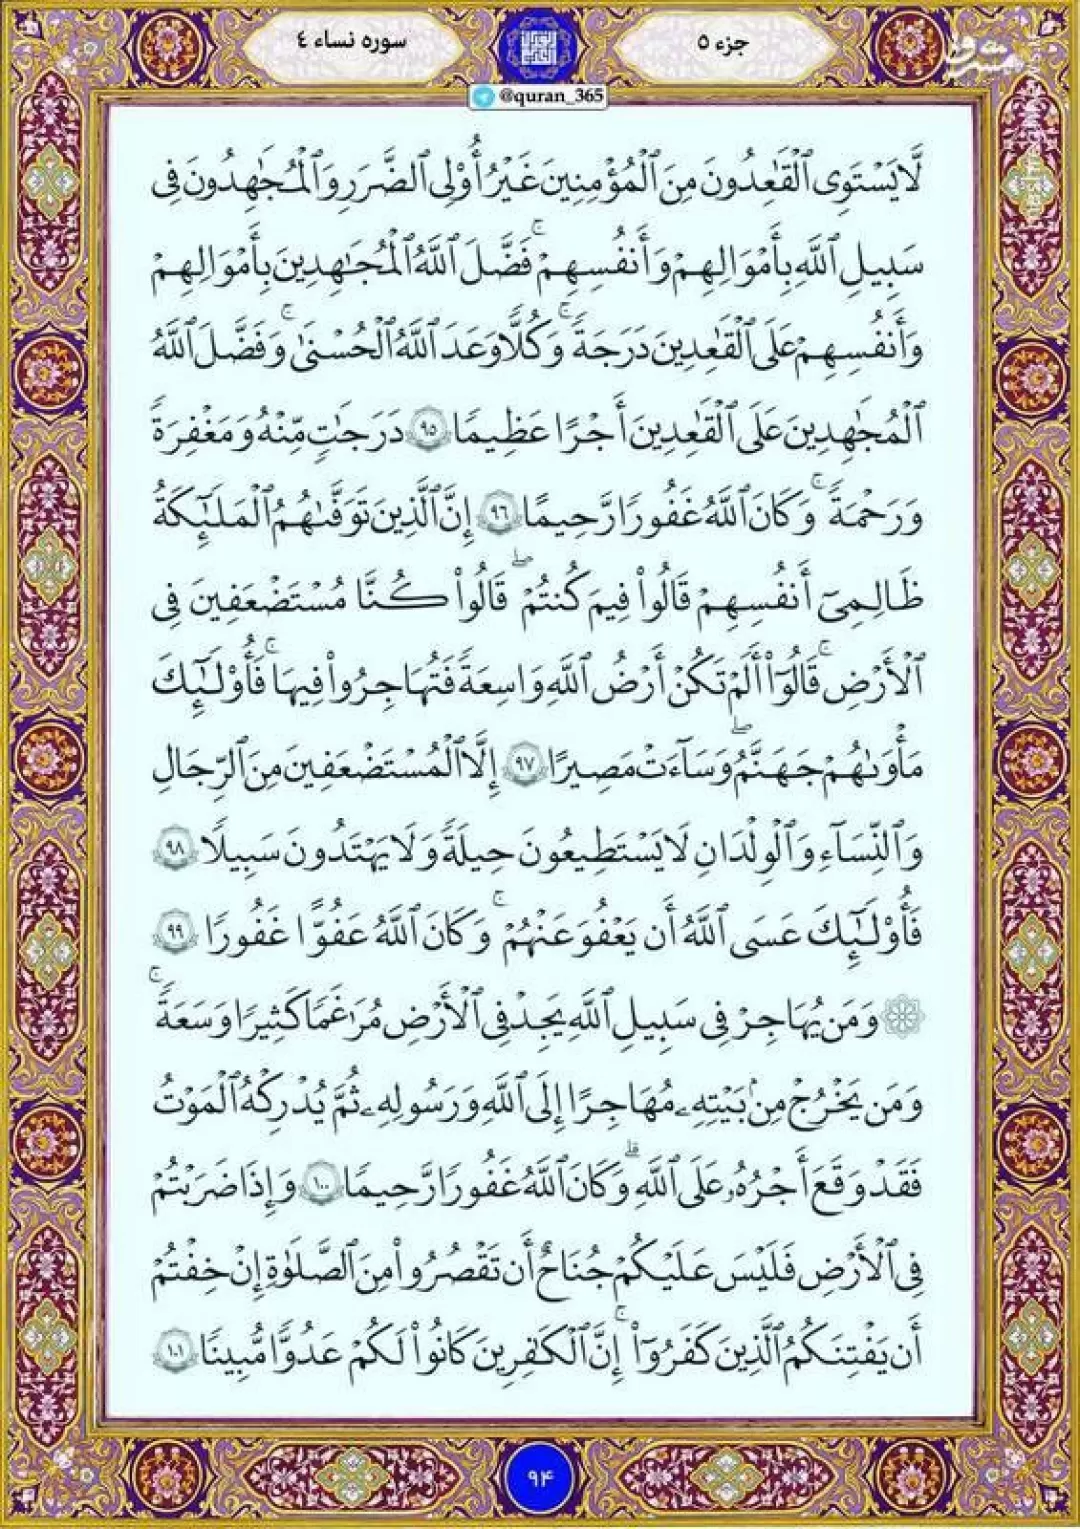 جزء ۵
سوره نساء ۴
@quran_365
لَّا يَسْتَوِى ٱلْقَٰعِدُونَ مِنَ ٱلْمُؤْمِنِينَ غَيْرُ أُوْلِى ٱلضَّرَرِ وَٱلْمُجَٰهِدُونَ فِى
سَبِيلِ ٱللَّهِ بِأَمْوَٰلِهِمْ وَأَنفُسِهِمْ ۚ فَضَّلَ ٱللَّهُ ٱلْمُجَٰهِدِينَ بِأَمْوَٰلِهِمْ
وَأَنفُسِهِمْ عَلَى ٱلْقَٰعِدِينَ دَرَجَةً ۚ وَكُلًّا وَعَدَ ٱللَّهُ ٱلْحُسْنَىٰ ۚ وَفَضَّلَ ٱللَّهُ
ٱلْمُجَٰهِدِينَ عَلَى ٱلْقَٰعِدِينَ أَجْرًا عَظِيمًا ۹۵ دَرَجَٰتٍ مِّنْهُ وَمَغْفِرَةً
وَرَحْمَةً ۚ وَكَانَ ٱللَّهُ غَفُورًا رَّحِيمًا ۹۶ إِنَّ ٱلَّذِينَ تَوَفَّىٰهُمُ ٱلْمَلَٰٓئِكَةُ
ظَالِمِىٓ أَنفُسِهِمْ قَالُواْ فِيمَ كُنتُمْ ۖ قَالُواْ كُنَّا مُسْتَضْعَفِينَ فِى
ٱلْأَرْضِ ۚ قَالُوٓاْ أَلَمْ تَكُنْ أَرْضُ ٱللَّهِ وَٰسِعَةً فَتُهَاجِرُواْ فِيهَا ۚ فَأُوْلَٰٓئِكَ
مَأْوَىٰهُمْ جَهَنَّمُ ۖ وَسَآءَتْ مَصِيرًا ۹۷ إِلَّا ٱلْمُسْتَضْعَفِينَ مِنَ ٱلرِّجَالِ
وَٱلنِّسَآءِ وَٱلْوِلْدَٰنِ لَا يَسْتَطِيعُونَ حِيلَةً وَلَا يَهْتَدُونَ سَبِيلًا ۹۸
فَأُوْلَٰٓئِكَ عَسَى ٱللَّهُ أَن يَعْفُوَ عَنْهُمْ ۚ وَكَانَ ٱللَّهُ عَفُوًّا غَفُورًا ۹۹
۞ وَمَن يُهَاجِرْ فِى سَبِيلِ ٱللَّهِ يَجِدْ فِى ٱلْأَرْضِ مُرَٰغَمًا كَثِيرًا وَسَعَةً ۚ
وَمَن يَخْرُجْ مِنۢ بَيْتِهِۦ مُهَاجِرًا إِلَى ٱللَّهِ وَرَسُولِهِۦ ثُمَّ يُدْرِكْهُ ٱلْمَوْتُ
فَقَدْ وَقَعَ أَجْرُهُۥ عَلَى ٱللَّهِ ۗ وَكَانَ ٱللَّهُ غَفُورًا رَّحِيمًا ۱۰۰ وَإِذَا ضَرَبْتُمْ
فِى ٱلْأَرْضِ فَلَيْسَ عَلَيْكُمْ جُنَاحٌ أَن تَقْصُرُواْ مِنَ ٱلصَّلَوٰةِ إِنْ خِفْتُمْ
أَن يَفْتِنَكُمُ ٱلَّذِينَ كَفَرُوٓاْ ۚ إِنَّ ٱلْكَٰفِرِينَ كَانُواْ لَكُمْ عَدُوًّا مُّبِينًا ۱۰۱
۹۴